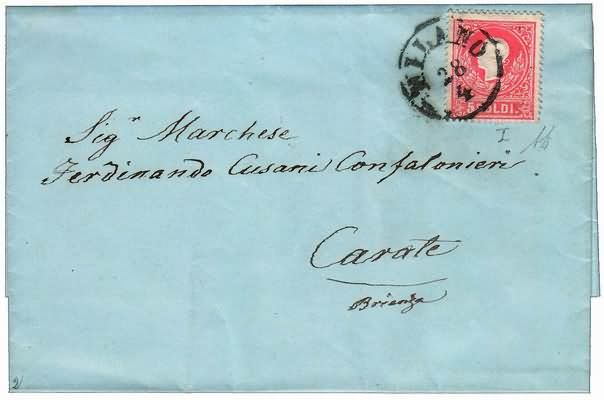 MILANO
28
4
5 SOLDI.
I
Sig.r Marchese
Ferdinando Cusani Confalonieri
Carate
Brianza
2